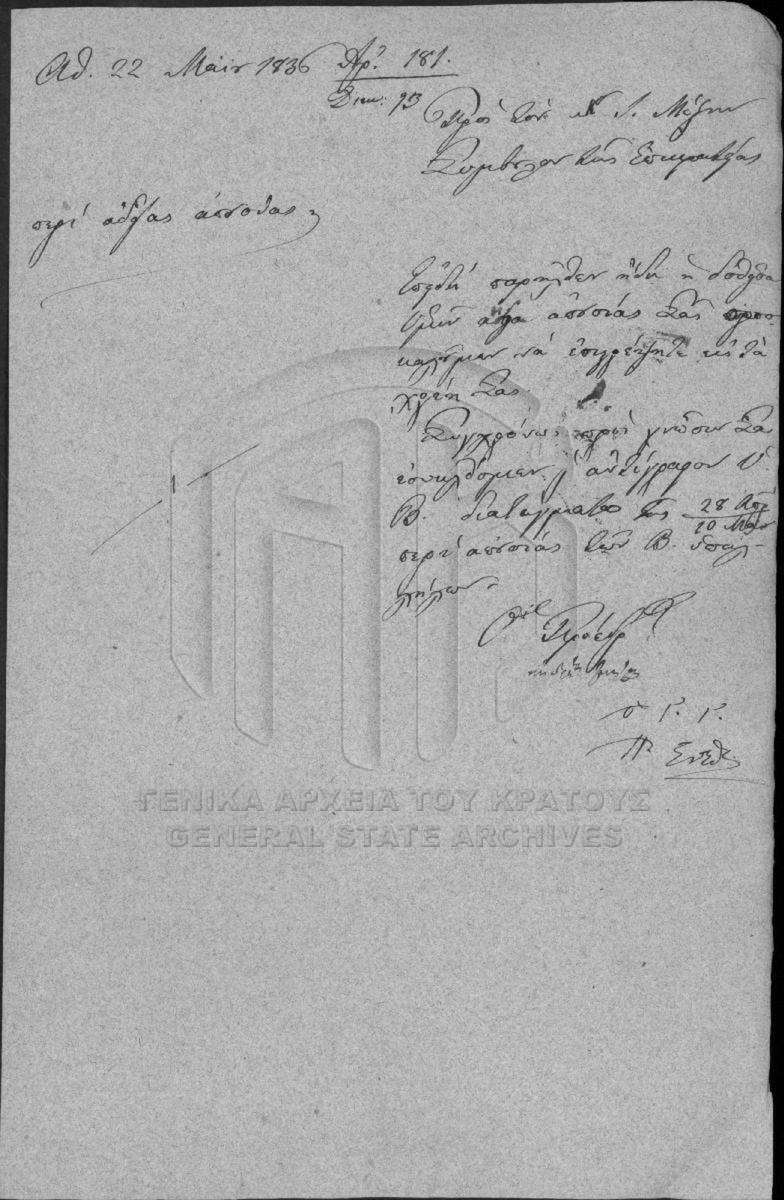 Αθ. 22 Μαΐου 1836 Αρ. 181.
Διεκ: 93
Πρὸς τὸν Κ Ι. Μέξην
Σύμβουλον τῆς Ἐπικρατείας
περὶ ἀδείας ἀπουσίας
Ἐπειδὴ παρῆλθεν ἤδη ἡ δοθεῖσα
ὑμῖν ἄδεια ἀπουσίας Σας προσ
καλοῦμεν νὰ ἐπιστρέψητε εἰς τὰ
χρέη Σας
Συγχρόνως πρὸς γνῶσιν Σας
ἐπικλείομεν ἀντίγραφον τοῦ
Β. διατάγματος τῆς 28 Απρ
10 Μαΐου
περὶ ἀπουσίας τῶν Β. ὑπαλ-
λήλων
Ὁ Πρόεδρ
ὁ Γ. Γ.
ΓΕΝΙΚΑ ΑΡΧΕΙΑ ΤΟΥ ΚΡΑΤΟΥΣ
GENERAL STATE ARCHIVES